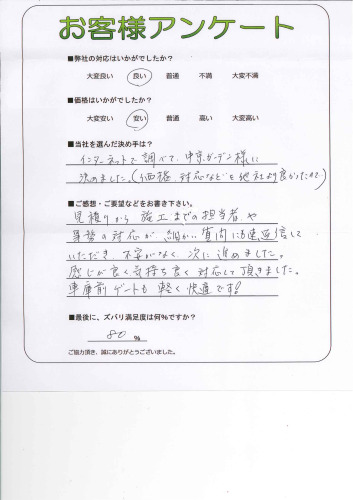 お客様アンケート
■弊社の対応はいかがでしたか?
大変良い 良い 普通 不満 大変不満
■価格はいかがでしたか?
大変安い 安い 普通 高い 大変高い
■当社を選んだ決め手は?
インターネットで調べて、中京ガーデン様に
決めました。(価格、対応などを他社より良かったので)
■ご感想・ご要望などをお書き下さい。
見積りから施工までの担当者や
事務の対応が、細かい質問にも迅速返信して
いただき、不安がなく、次に進めました。
感じが良く気持ち良く対応して頂きました。
車庫前ゲートも軽く快適です!
■最後に、ズバリ満足度は何%ですか?
80 %
ご協力頂き、誠にありがとうございました。